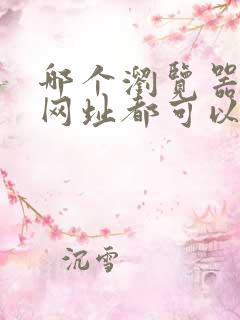 哪个瀏覽器
网址都可以
沉雪